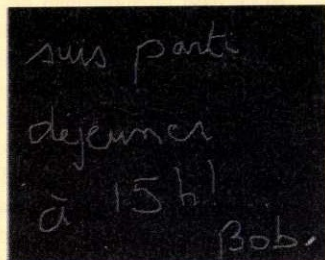 suis parti
déjeuner
à 15h!
Bob.